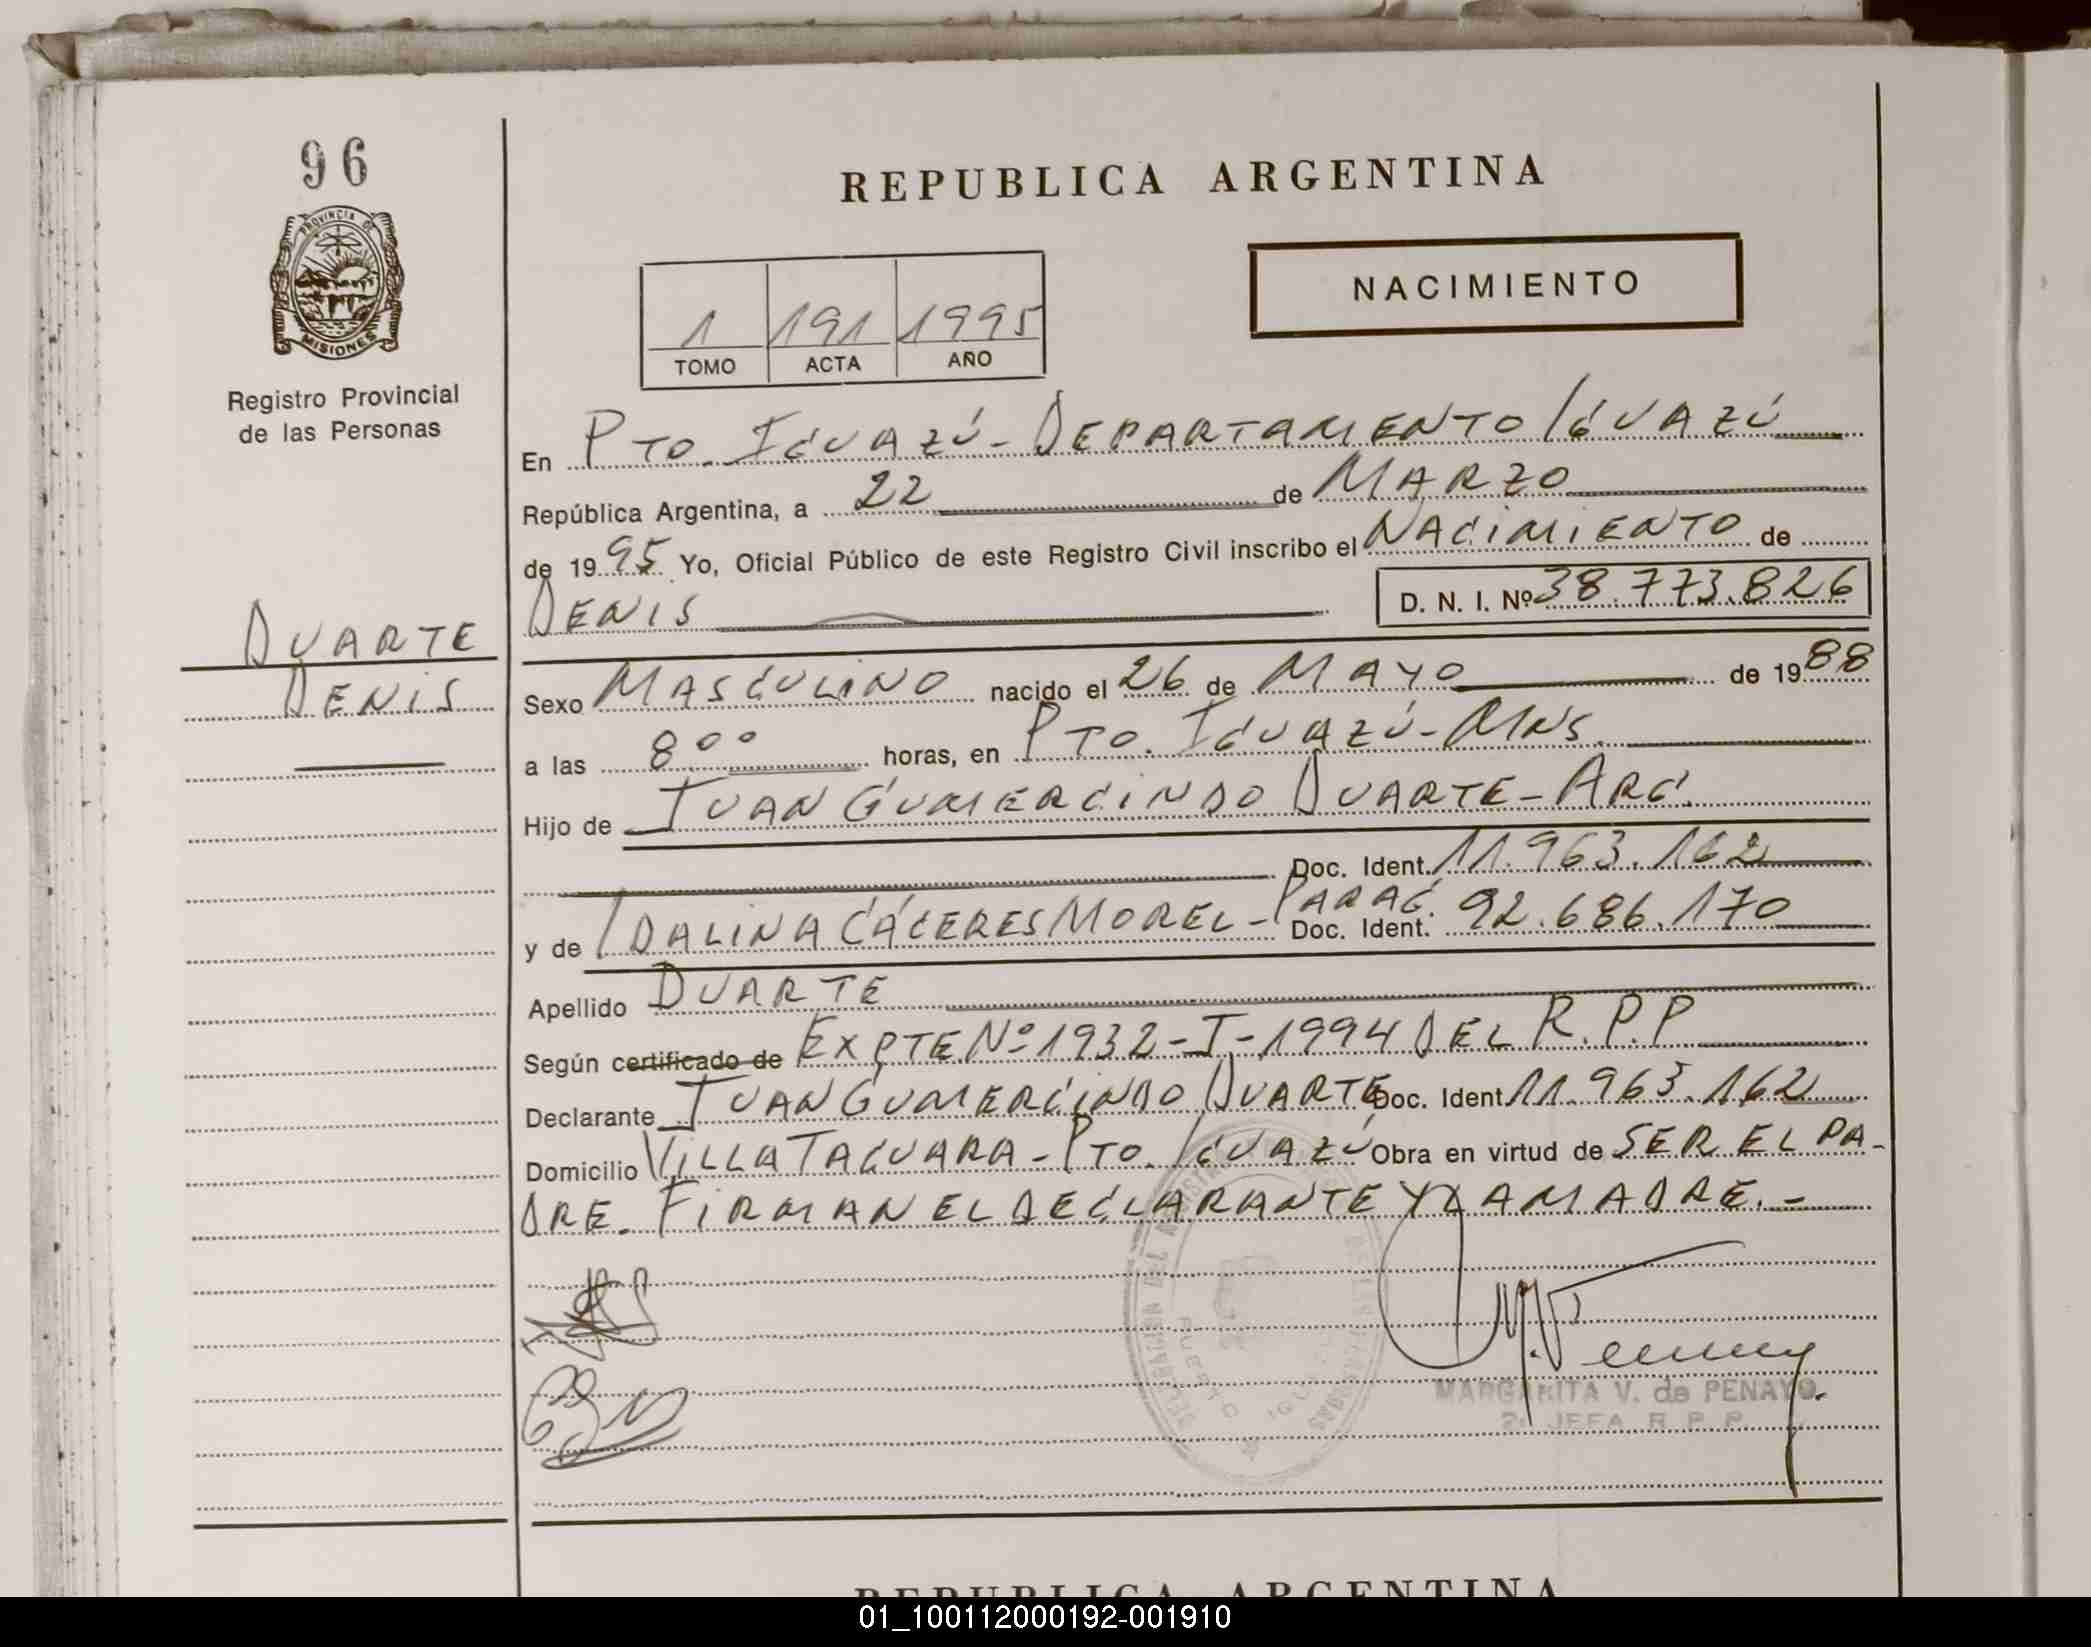 96
PROVINCIA DE
MISIONES
Registro Provincial
de las Personas
DUARTE
DENIS
REPUBLICA ARGENTINA
NACIMIENTO
1 191 1995
TOMO ACTA AÑO
En PTO. IGUAZÚ - DEPARTAMENTO IGUAZÚ
República Argentina, a 22 de MARZO
de 1995 Yo, Oficial Público de este Registro Civil inscribo el NACIMIENTO de
DENIS D. N. I. Nº 38.773.826
Sexo MASCULINO nacido el 26 de MAYO de 1988
a las 8°° horas, en PTO. IGUAZÚ - MNS.
Hijo de JUAN GUMERCINDO DUARTE - ARG.
Doc. Ident. 11.963.162
y de IDALINA CÁCERES MOREL - PARAG. Doc. Ident. 92.686.170
Apellido DUARTE
Según certificado de EXPTE Nº 1932-I-1994 DEL R.P.P
Declarante JUAN GUMERCINDO DUARTE Doc. Ident. 11.963.162
Domicilio VILLA TACUARA - PTO. IGUAZÚ Obra en virtud de SER EL PA-
DRE. FIRMAN EL DECLARANTE Y LA MADRE. -
PUERTO IGUAZU
MARGARITA V. de PENAYO
2a JEFA R.P.P.
REPUBLICA ARGENTINA
01_100112000192-001910